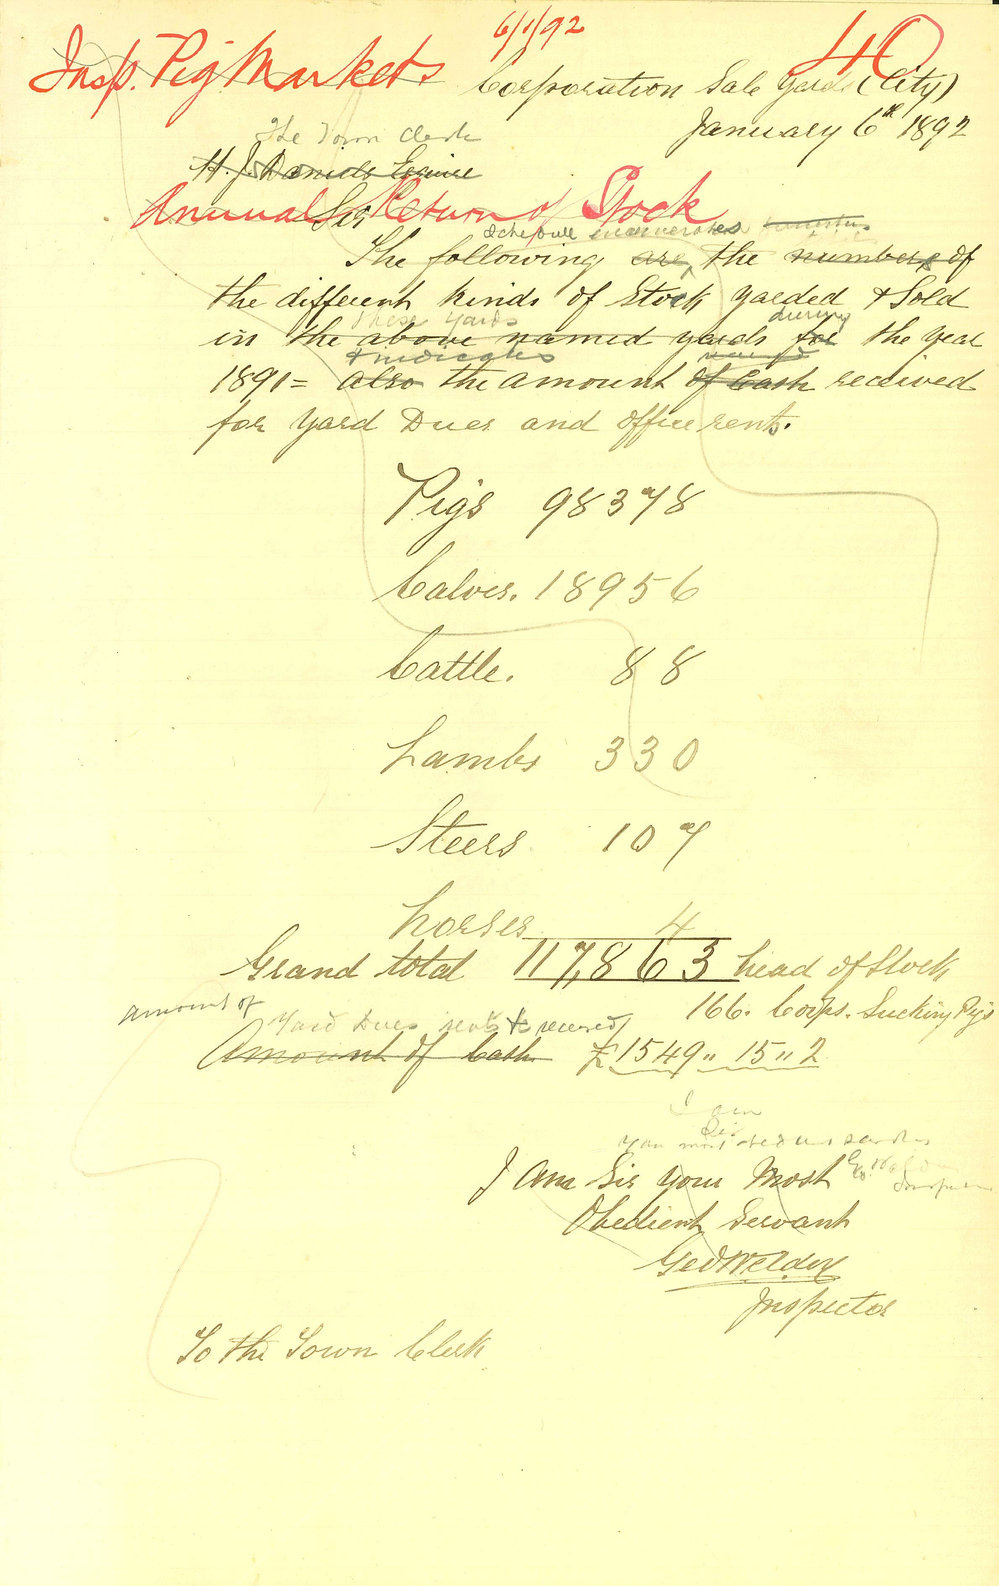 6/1/92
40
Insp. Pig Markets
Corporation Sale Yards (City)
January 6th 1892
The Town Clerk
H. J. Daniels Esquire
Annual Return of Stock
Sir
Schedule enumerates
The following are, the numbers of
the different kinds of Stock yarded & Sold
these yards during
in the above named yards for the year
& indicates
1891= also the amount of Cash received
for yard Dues and office rents.
Pigs 98378
Calves. 18956
Cattle. 88
Lambs 330
Steers 107
horses 4
Grand total 117,863 head of Stock
166. Corps. Sucking Pigs
Amount of
Yard Dues rents &c received
Amount of Cash £1549" 15" 2
I am
Sir
Your most
I am Sir your Most
Obedient Servant
Inspector
To the Town Clerk